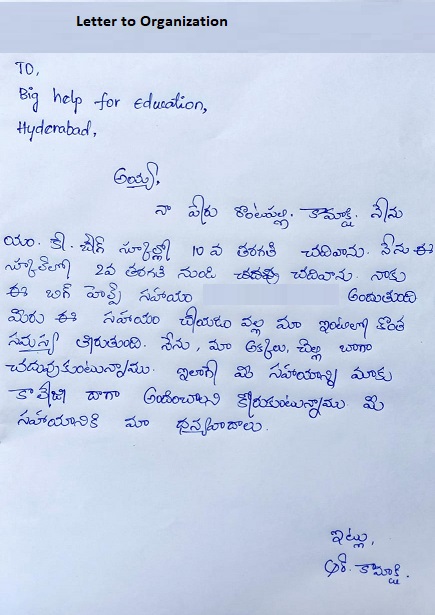 Letter to Organization
TO,
Big help for education,
Hyderabad,
అయ్య,
నా పేరు కామాక్షి. నేను
యం. కె. స్కూల్లో 10 వ తరగతి చదివాను. నేను ఈ
స్కూల్‌లో 2వ తరగతి నుండి చదివాను. నాకు
ఈ బిగ్ హెల్ప్ సహాయం అందుతుంది
మీరు ఈ సహాయం చేయడం వల్ల మా ఇంటిలో కొంత
సమస్య తీరుతుంది. నేను, మా అక్కలు, చెల్లి బాగా
చదువుకుంటున్నాము. ఇలాగే మీ సహాయాన్ని మాకు
కాలేజి దాగా అందించాలని కోరుకుంటున్నాము మీ
సహాయానికి మా ధన్యవాదాలు.
ఇట్లు,
ఆర్. కామాక్షి.